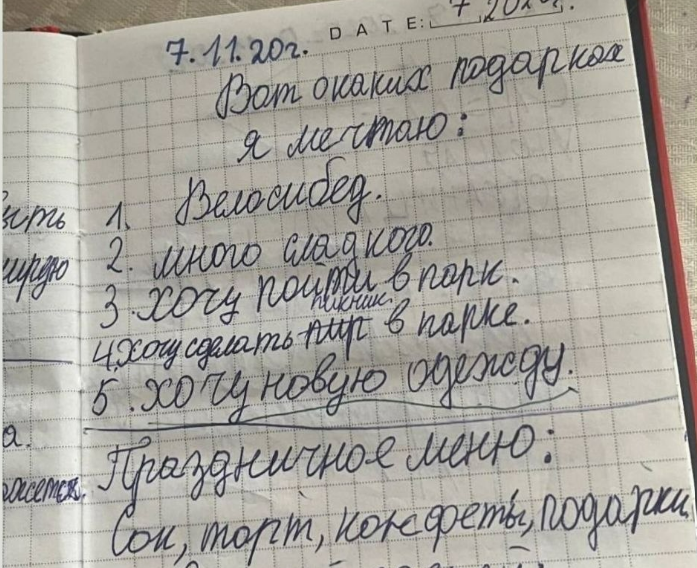 7 2020г.
DATE:
7.11.20г.
Вот окаких подарках
я мечтаю:
1. Велосибед.
2. много сладкого.
3. хочу пойти в парк.
пикник
4. хочу сделать пир в парке.
5. хочу новую одежду.
Праздничное меню:
Сок, торт, конфеты, подарки